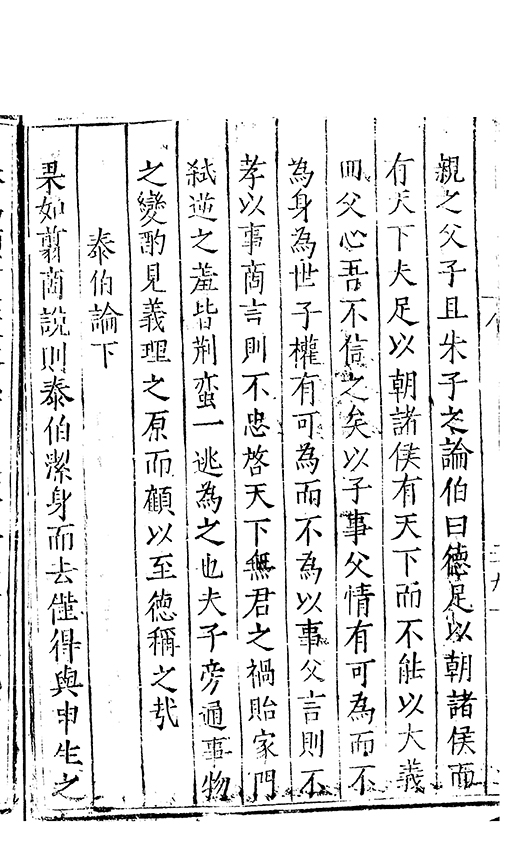 親之父子且朱子之論伯曰德足以朝諸侯而
有天下夫足以朝諸侯有天下而不能以大義
回父心吾不信之矣以子事父情有可為而不
為身為世子權有可為而不為以事父言則不
孝以事商言則不忠啓天下無君之禍貽家門
弑逆之羞皆荆蛮一逃為之也夫子旁通事物
之變酌見義理之原而顧以至德稱之哉
泰伯論下
果如翦商說則泰伯潔身而去僅得與申生之